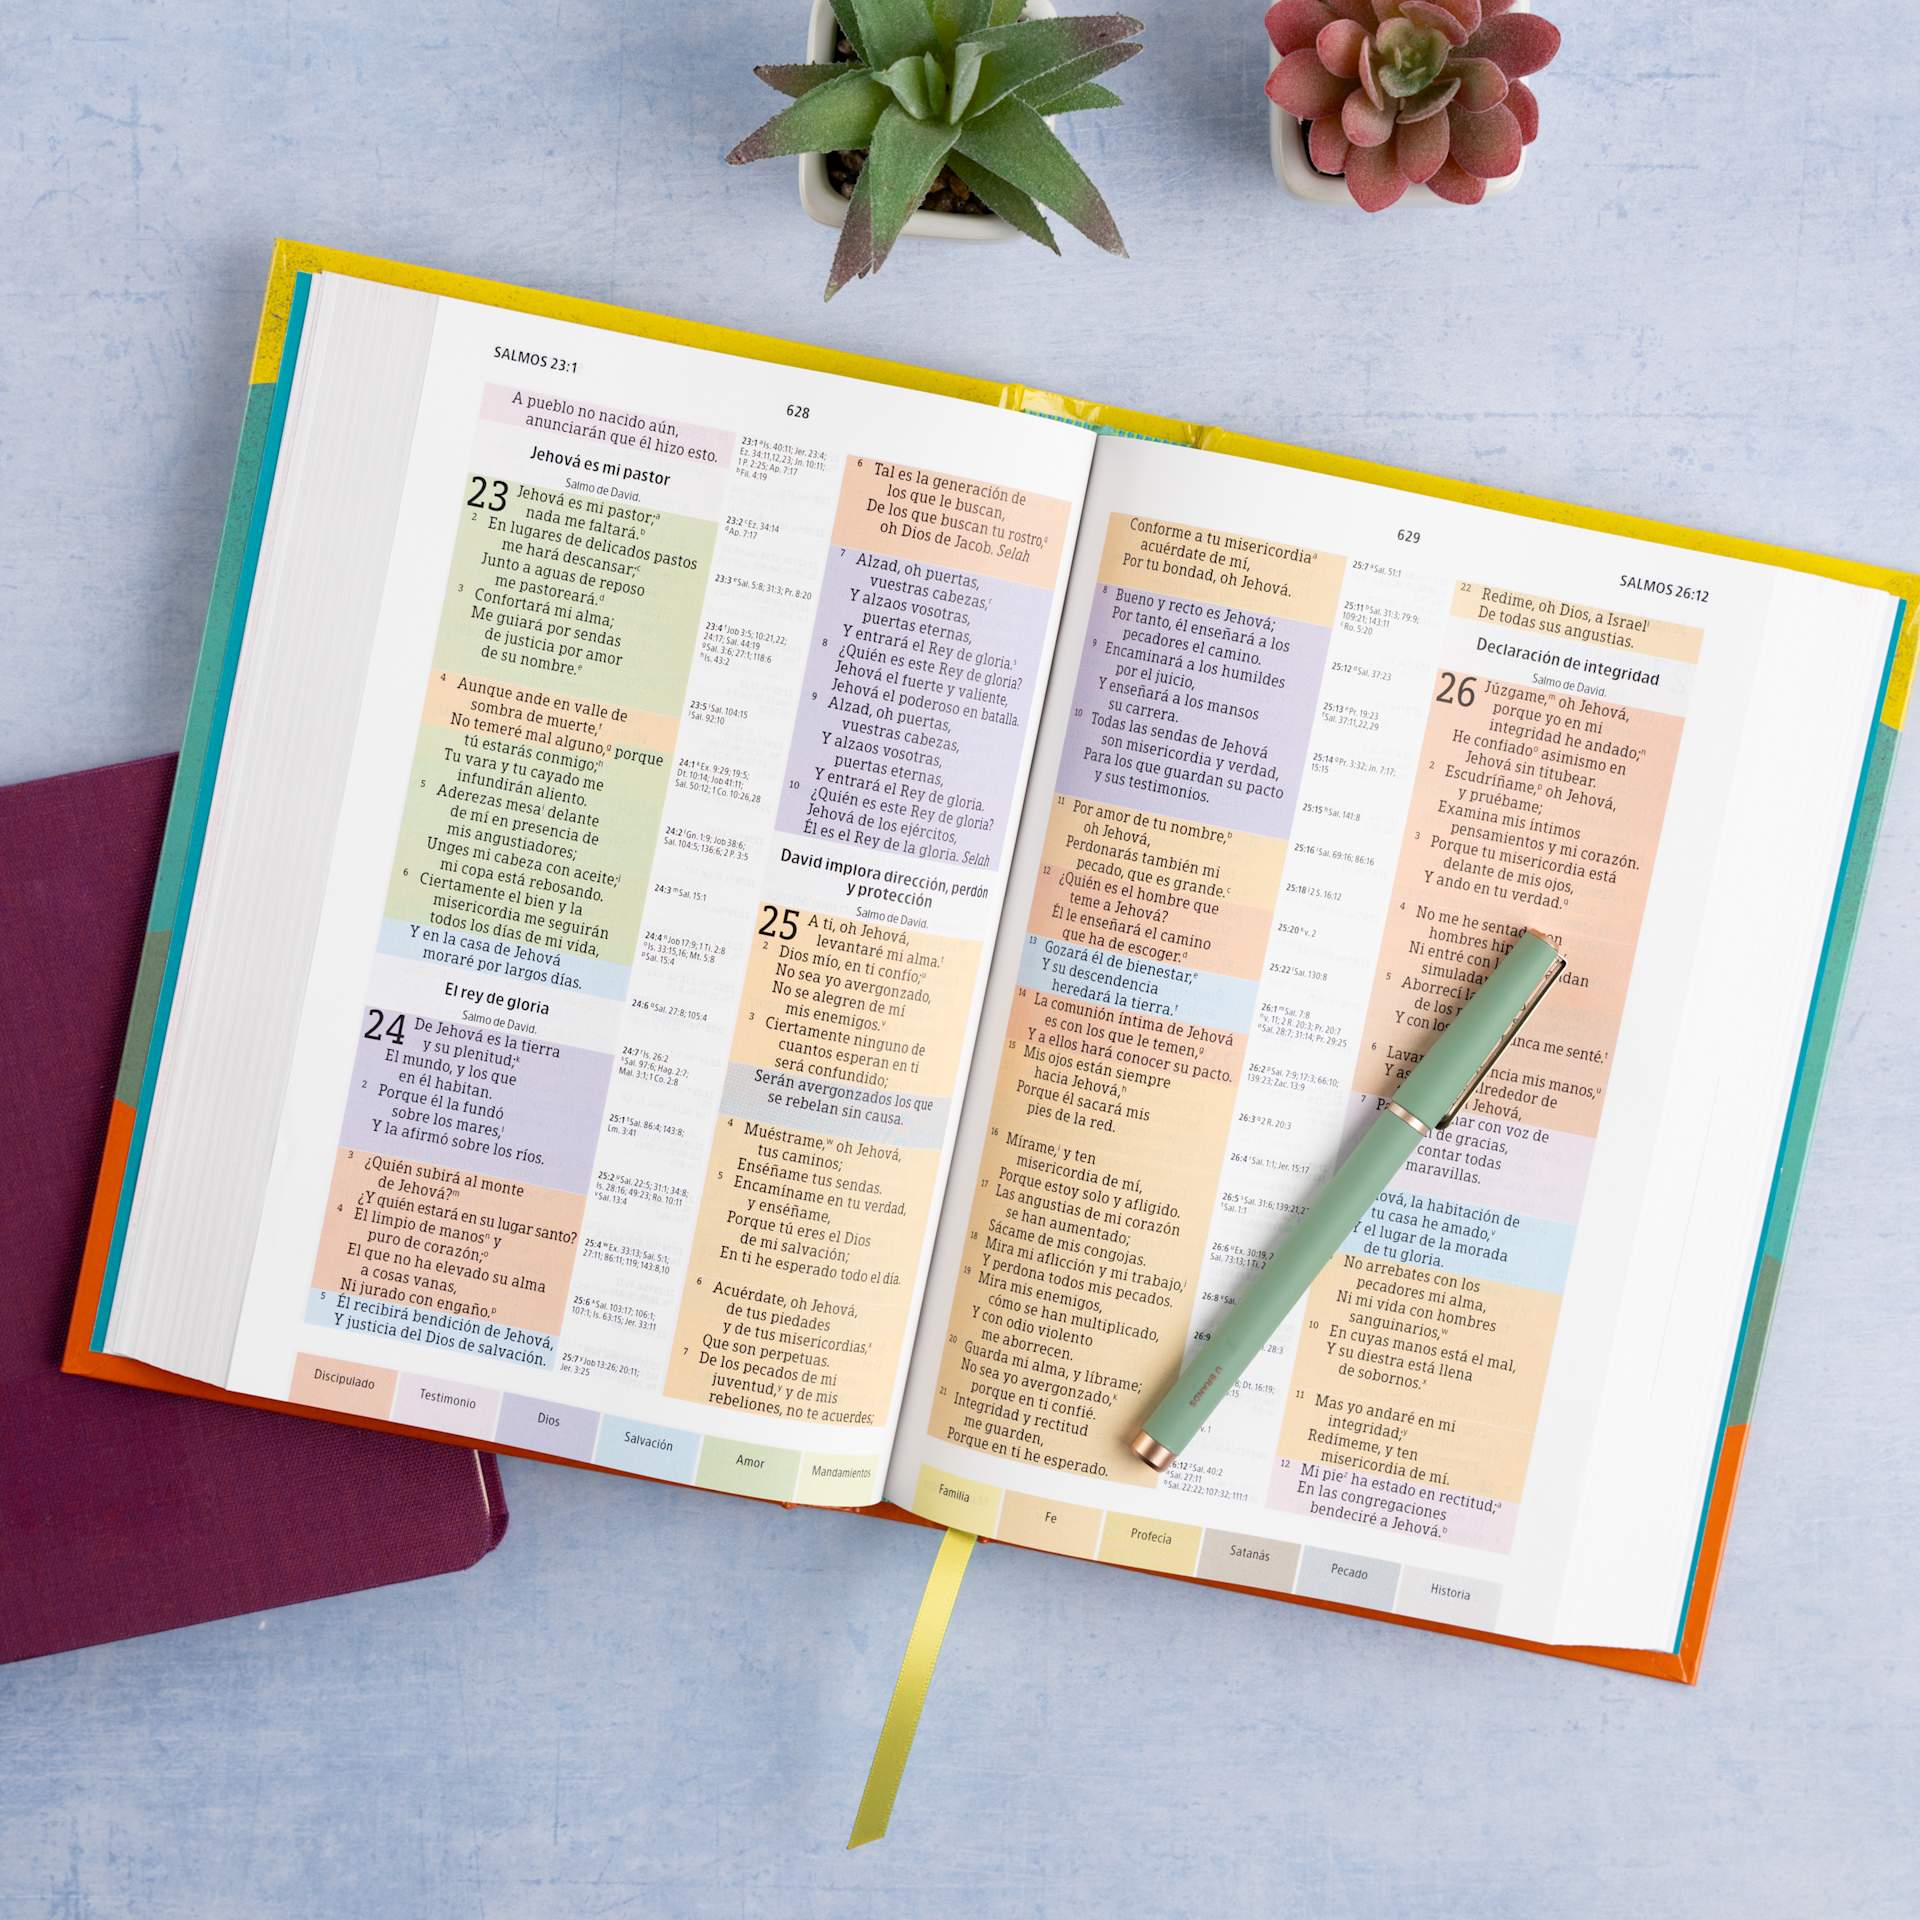 SALMOS 23:1
628
A pueblo no nacido aún,
anunciarán que él hizo esto.
Jehová es mi pastor
Salmo de David.
23 Jehová es mi pastor;a
nada me faltará.b
2 En lugares de delicados pastos
me hará descansar;c
Junto a aguas de reposo
me pastoreará.d
3 Confortará mi alma;
Me guiará por sendas
de justicia por amor
de su nombre.e
4 Aunque ande en valle de
sombra de muerte,f
No temeré mal alguno,g porque
tú estarás conmigo;h
Tu vara y tu cayado me
infundirán aliento.
5 Aderezas mesai delante
de mí en presencia de
mis angustiadores;
Unges mi cabeza con aceite;j
mi copa está rebosando.
6 Ciertamente el bien y la
misericordia me seguirán
todos los días de mi vida,
Y en la casa de Jehová
moraré por largos días.
El rey de gloria
Salmo de David.
24 De Jehová es la tierra
y su plenitud;k
El mundo, y los que
en él habitan.
2 Porque él la fundó
sobre los mares,l
Y la afirmó sobre los ríos.
3 ¿Quién subirá al monte
de Jehová?m
¿Y quién estará en su lugar santo?
4 El limpio de manosn y
puro de corazón;o
El que no ha elevado su alma
a cosas vanas,
Ni jurado con engaño.p
5 Él recibirá bendición de Jehová,
Y justicia del Dios de salvación.
23:1 a Is. 40:11; Jer. 23:4;
Ez. 34:11,12,23; Jn. 10:11;
1 P. 2:25; Ap. 7:17
b Fil. 4:19
23:2 c Ez. 34:14
d Ap. 7:17
23:3 e Sal. 5:8; 31:3; Pr. 8:20
23:4 f Job 3:5; 10:21,22;
24:17; Sal. 44:19
g Sal. 3:6; 27:1; 118:6
h Is. 43:2
23:5 i Sal. 104:15
j Sal. 92:10
24:1 k Ex. 9:29; 19:5;
Dt. 10:14; Job 41:11;
Sal. 50:12; 1 Co. 10:26,28
24:2 l Gn. 1:9; Job 38:6;
Sal. 104:5; 136:6; 2 P. 3:5
24:3 m Sal. 15:1
24:4 n Job 17:9; 1 Ti. 2:8
o Is. 33:15,16; Mt. 5:8
p Sal. 15:4
24:6 q Sal. 27:8; 105:4
24:7 r Is. 26:2
s Sal. 97:6; Hag. 2:7;
Mal. 3:1; 1 Co. 2:8
25:1 t Sal. 86:4; 143:8;
Lm. 3:41
25:2 u Sal. 22:5; 31:1; 34:8;
Is. 28:16; 49:23; Ro. 10:11
v Sal. 13:4
25:4 w Ex. 33:13; Sal. 5:1;
27:11; 86:11; 119; 143:8,10
25:6 x Sal. 103:17; 106:1;
107:1; Is. 63:15; Jer. 33:11
25:7 y Job 13:26; 20:11;
Jer. 3:25
6 Tal es la generación de
los que le buscan,
De los que buscan tu rostro,q
oh Dios de Jacob. Selah
7 Alzad, oh puertas,
vuestras cabezas,r
Y alzaos vosotras,
puertas eternas,
Y entrará el Rey de gloria.s
8 ¿Quién es este Rey de gloria?
Jehová el fuerte y valiente,
Jehová el poderoso en batalla.
9 Alzad, oh puertas,
vuestras cabezas,
Y alzaos vosotras,
puertas eternas,
Y entrará el Rey de gloria.
10 ¿Quién es este Rey de gloria?
Jehová de los ejércitos,
Él es el Rey de la gloria. Selah
David implora dirección, perdón
y protección
Salmo de David.
25 A ti, oh Jehová,
levantaré mi alma.t
2 Dios mío, en ti confío;u
No sea yo avergonzado,
No se alegren de mí
mis enemigos.v
3 Ciertamente ninguno de
cuantos esperan en ti
será confundido;
Serán avergonzados los que
se rebelan sin causa.
4 Muéstrame,w oh Jehová,
tus caminos;
Enséñame tus sendas.
5 Encamíname en tu verdad,
y enséñame,
Porque tú eres el Dios
de mi salvación;
En ti he esperado todo el día.
6 Acuérdate, oh Jehová,
de tus piedades
y de tus misericordias,x
Que son perpetuas.
7 De los pecados de mi
juventud,y y de mis
rebeliones, no te acuerdes;
Discipulado
Testimonio
Dios
Salvación
Amor
Mandamientos
629
SALMOS 26:12
Conforme a tu misericordiaa
acuérdate de mí,
Por tu bondad, oh Jehová.
8 Bueno y recto es Jehová;
Por tanto, él enseñará a los
pecadores el camino.
9 Encaminará a los humildes
por el juicio,
Y enseñará a los mansos
su carrera.
10 Todas las sendas de Jehová
son misericordia y verdad,
Para los que guardan su pacto
y sus testimonios.
11 Por amor de tu nombre,b
oh Jehová,
Perdonarás también mi
pecado, que es grande.c
12 ¿Quién es el hombre que
teme a Jehová?
Él le enseñará el camino
que ha de escoger.d
13 Gozará él de bienestar,e
Y su descendencia
heredará la tierra.f
14 La comunión íntima de Jehová
es con los que le temen,g
Y a ellos hará conocer su pacto.
15 Mis ojos están siempre
hacia Jehová,h
Porque él sacará mis
pies de la red.
16 Mírame,i y ten
misericordia de mí,
Porque estoy solo y afligido.
17 Las angustias de mi corazón
se han aumentado;
Sácame de mis congojas.
18 Mira mi aflicción y mi trabajo,j
Y perdona todos mis pecados.
19 Mira mis enemigos,
cómo se han multiplicado,
Y con odio violento
me aborrecen.
20 Guarda mi alma, y líbrame;
No sea yo avergonzado,k
porque en ti confié.
21 Integridad y rectitud
me guarden,
Porque en ti he esperado.
25:7 a Sal. 51:1
25:11 b Sal. 31:3; 79:9;
109:21; 143:11
c Ro. 5:20
25:12 d Sal. 37:23
25:13 e Pr. 19:23
f Sal. 37:11,22,29
25:14 g Pr. 3:32; Jn. 7:17;
15:15
25:15 h Sal. 141:8
25:16 i Sal. 69:16; 86:16
25:18 j 2 S. 16:12
25:20 k v. 2
25:22 l Sal. 130:8
26:1 m Sal. 7:8
n v. 11; 2 R. 20:3; Pr. 20:7
o Sal. 28:7; 31:14; Pr. 29:25
26:2 p Sal. 7:9; 17:3; 66:10;
139:23; Zac. 13:9
26:3 q 2 R. 20:3
26:4 r Sal. 1:1; Jer. 15:17
26:5 s Sal. 31:6; 139:21,2
t Sal. 1:1
26:6 u Ex. 30:19,2
Sal. 73:13; 1 Ti. 2
26:8 v Sal.
26:9
28:3
8; Dt. 16:19;
15
v. 1
6:12 z Sal. 40:2
a Sal. 27:11
b Sal. 22:22; 107:32; 111:1
22 Redime, oh Dios, a Israell
De todas sus angustias.
Declaración de integridad
Salmo de David.
26 Júzgame,m oh Jehová,
porque yo en mi
integridad he andado;n
He confiadoo asimismo en
Jehová sin titubear.
2 Escudríñame,p oh Jehová,
y pruébame;
Examina mis íntimos
pensamientos y mi corazón.
3 Porque tu misericordia está
delante de mis ojos,
Y ando en tu verdad.q
4 No me he sentado con
hombres hip
Ni entré con l dan
simulada
5 Aborrecí la
de los
Y con los nca me senté.t
6 Lavar ncia mis manos,u
Y as lrededor de
Jehová,
7 Pa nar con voz de
n de gracias,
contar todas
maravillas.
ová, la habitación de
tu casa he amado,v
Y el lugar de la morada
de tu gloria.
No arrebates con los
pecadores mi alma,
Ni mi vida con hombres
sanguinarios,w
10 En cuyas manos está el mal,
Y su diestra está llena
de sobornos.x
11 Mas yo andaré en mi
integridad;y
Redímeme, y ten
misericordia de mí.
12 Mi piez ha estado en rectitud;a
En las congregaciones
bendeciré a Jehová.b
U BRANDS
Familia
Fe
Profecía
Satanás
Pecado
Historia